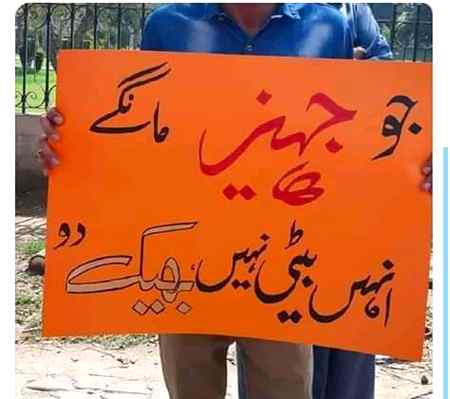 جو جہیز مانگے
انہیں بیٹی نہیں، بھیک دو